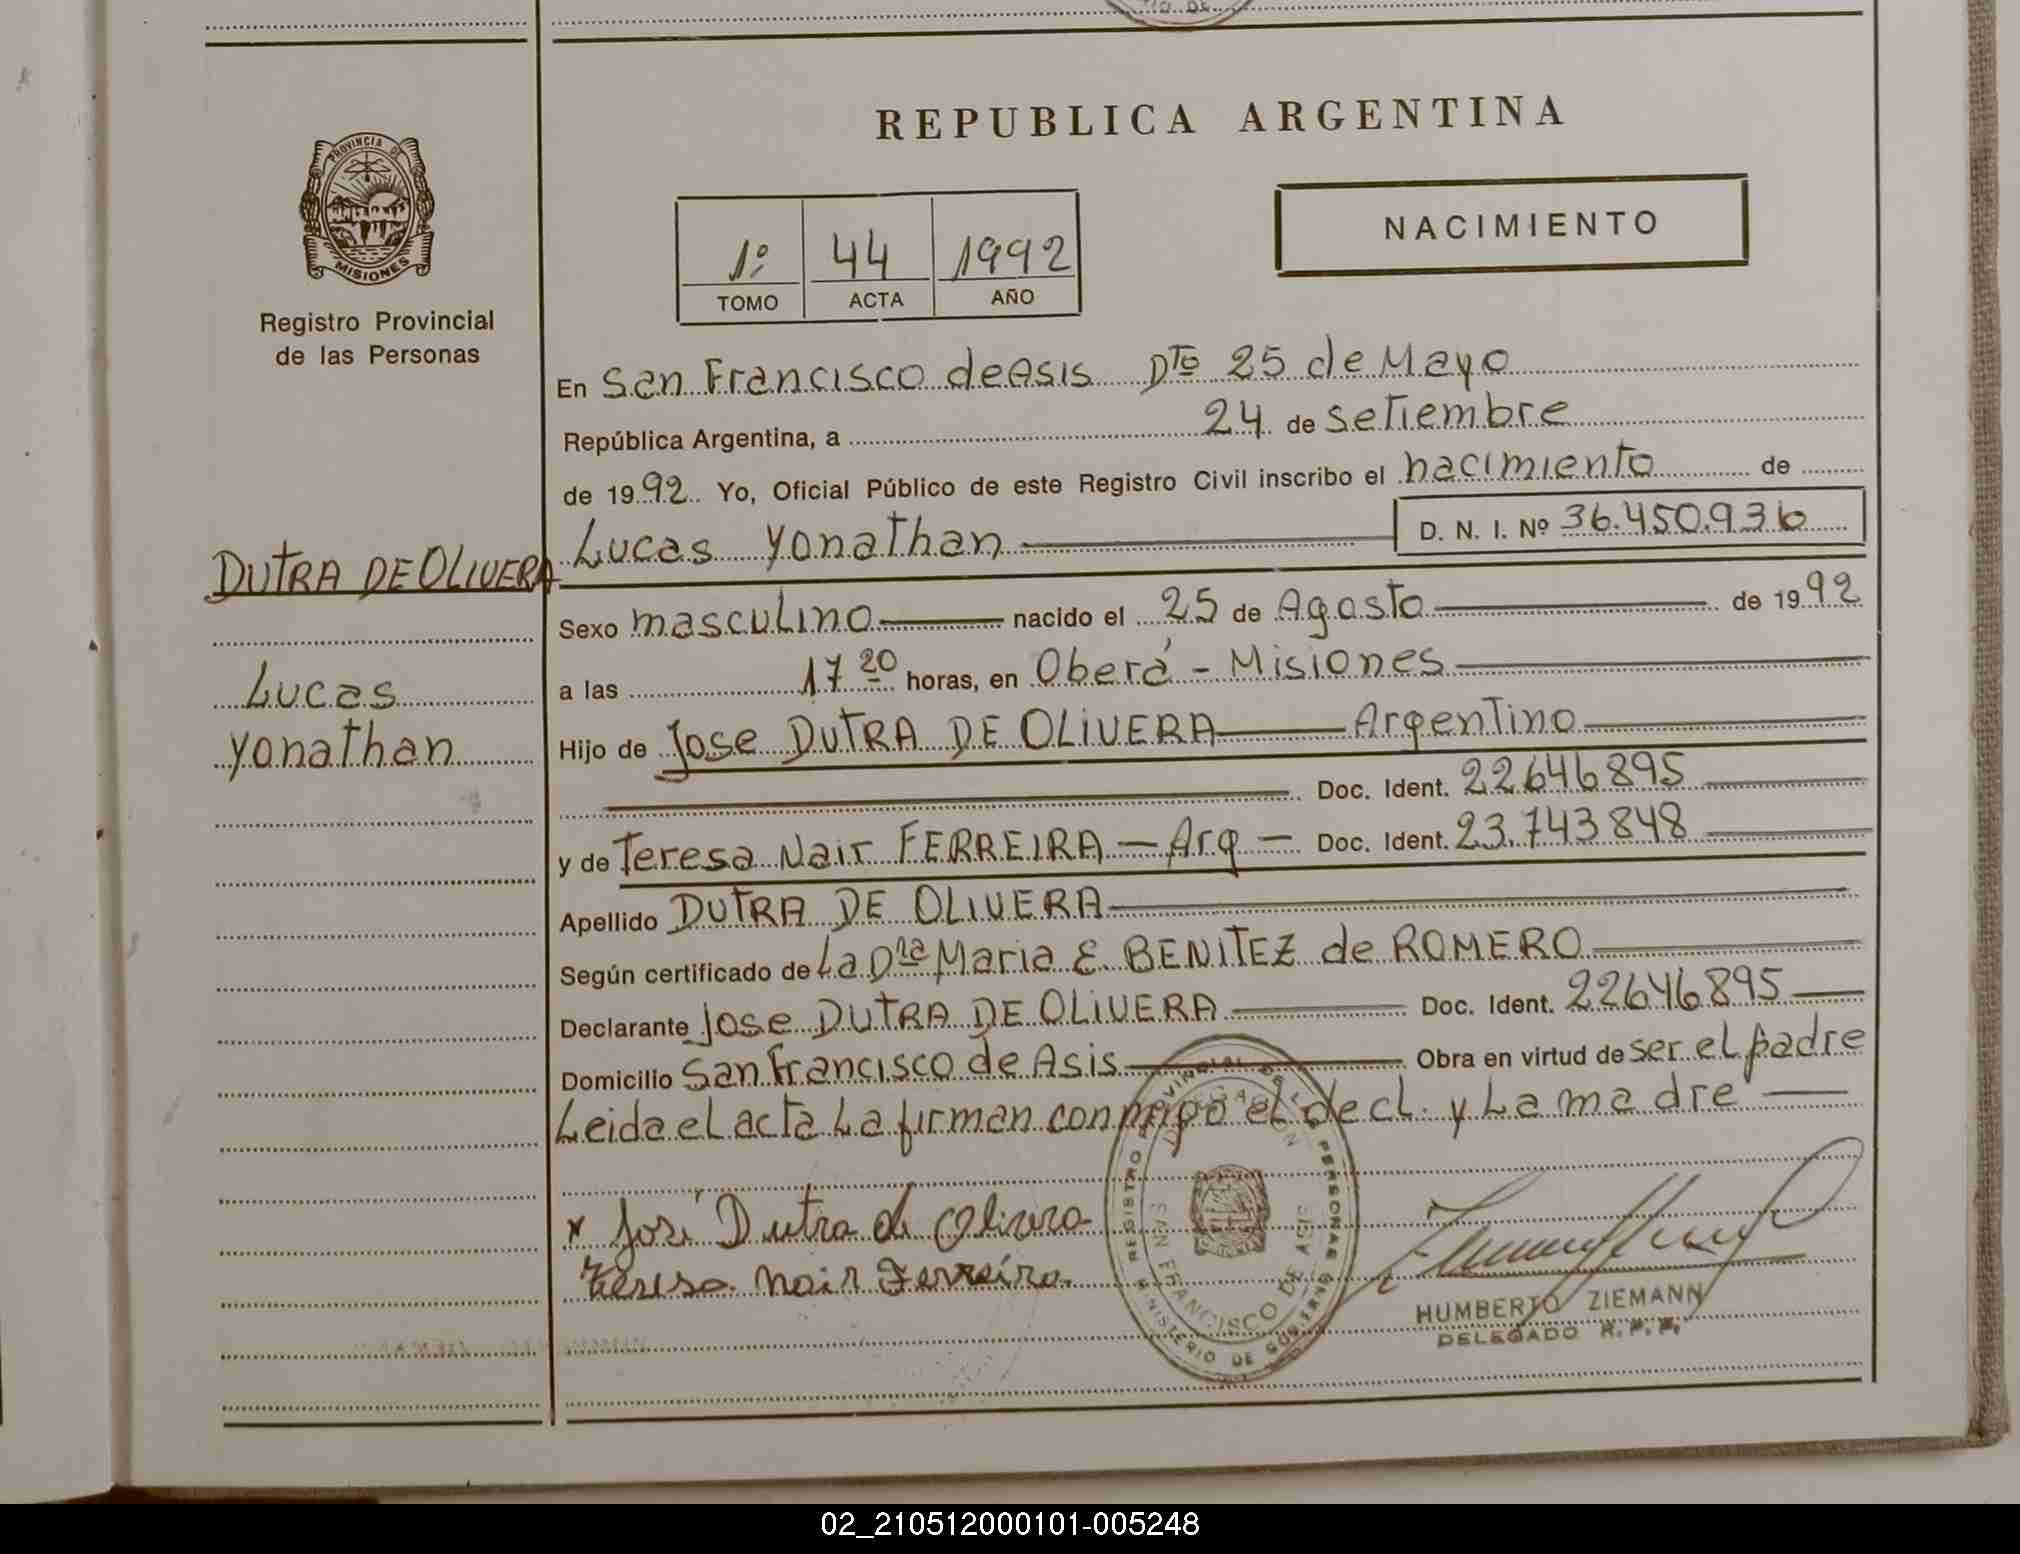 REPUBLICA ARGENTINA
PROVINCIA DE
MISIONES
Registro Provincial
de las Personas
NACIMIENTO
1º 44 1992
TOMO ACTA AÑO
En San Francisco de Asis Dto 25 de Mayo
República Argentina, a 24 de setiembre
de 1992 Yo, Oficial Público de este Registro Civil inscribo el nacimiento de
Lucas Yonathan D. N. I. Nº 36.450.936
DUTRA DE OLIVERA
Lucas
Yonathan
Sexo masculino nacido el 25 de Agosto de 1992
a las 17 20 horas, en Oberá - Misiones
Hijo de Jose DUTRA DE OLIVERA Argentino
Doc. Ident. 22646895
y de Teresa Nair FERREIRA - Arg - Doc. Ident. 23.743848
Apellido DUTRA DE OLIVERA
Según certificado de La Dra Maria E BENITEZ de ROMERO
Declarante Jose DUTRA DE OLIVERA Doc. Ident. 22646895
Domicilio San Francisco de Asis Obra en virtud de ser el padre
Leida el acta La firman conmigo el decl. y La madre
x José Dutra de Olivera
Teresa Nair Ferreira
REGISTRO PROVINCIAL DE LAS PERSONAS
MINISTERIO DE GOBIERNO
DELEGACION
SAN FRANCISCO DE ASIS
HUMBERTO ZIEMANN
DELEGADO R. P. P.
02_210512000101-005248